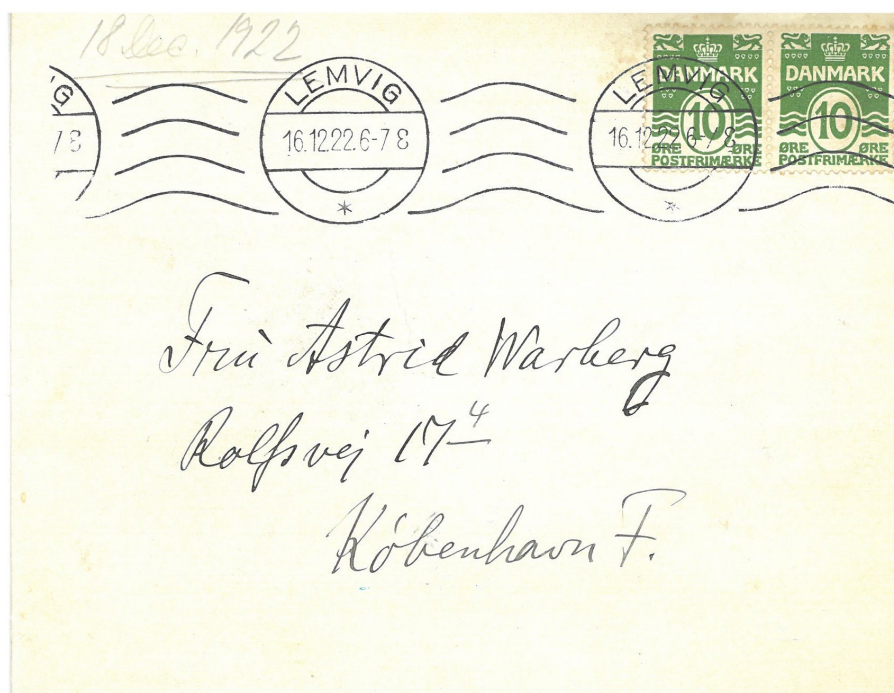 18 Dec. 1922
LEMVIG
16.12.22.6-7 8
LEMVIG
16.12.22.6-7 8
VIG
7 8
DANMARK
10
ØRE ØRE
POSTFRIMÆRKE
DANMARK
10
ØRE ØRE
POSTFRIMÆRKE
Fru Astrid Warberg
Rolfsvej 17 4
København F.